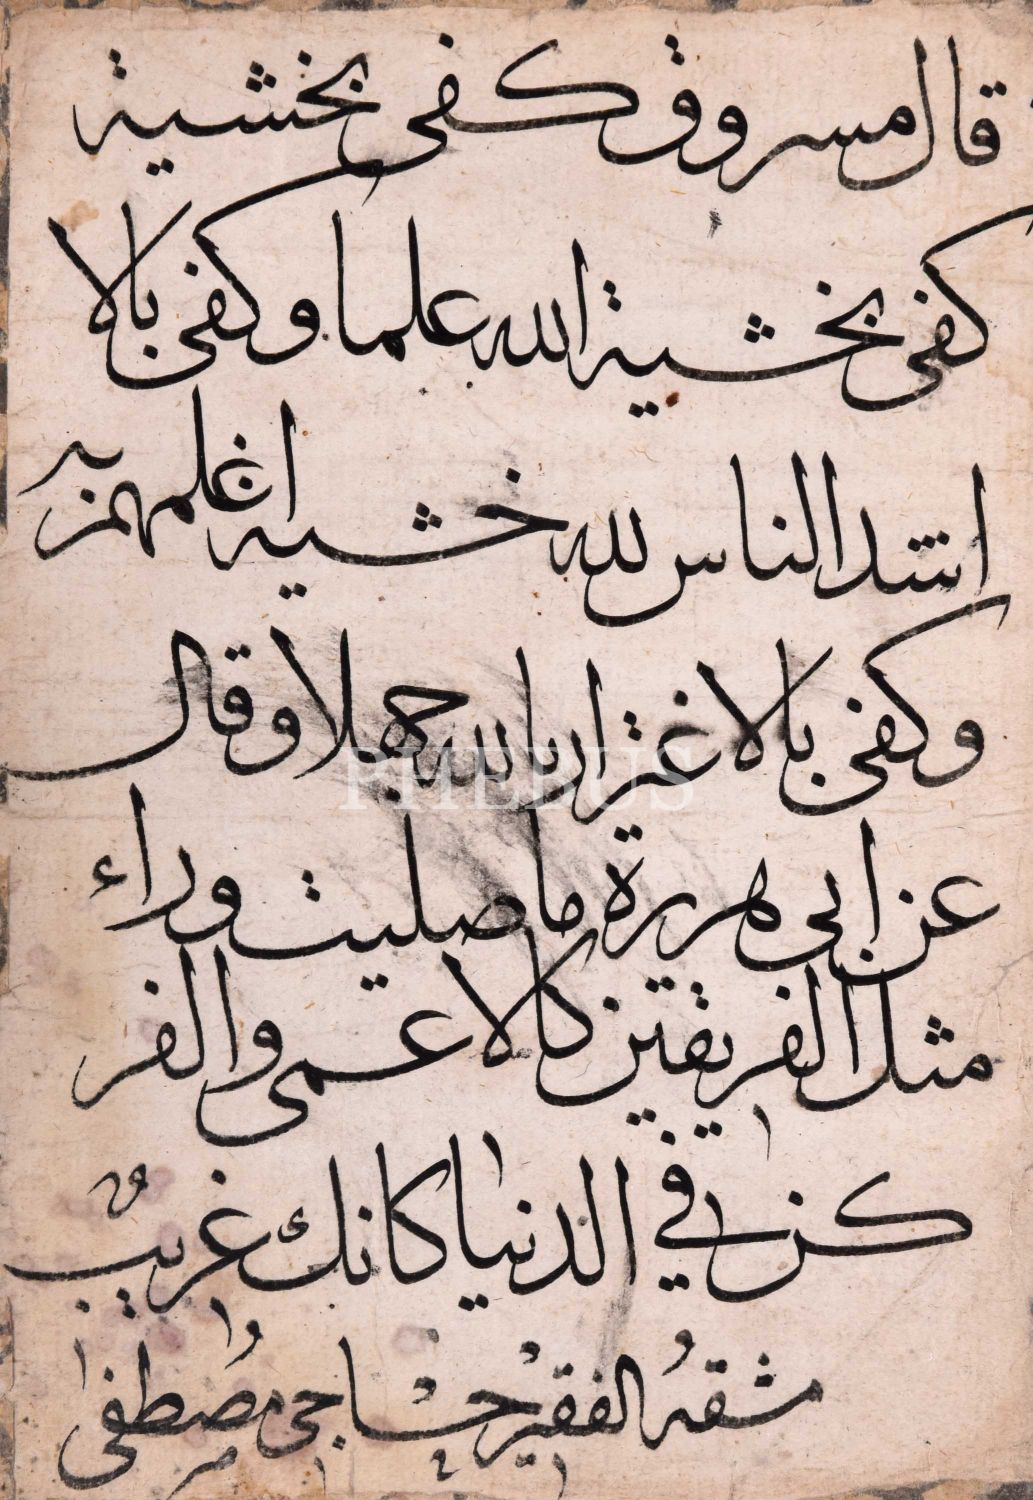 قال مسروق كفى بخشية
كفى بخشية الله علما وكفى بالا
اشد الناس لله خشية اعلمهم به
وكفى بالاغترار بالله جهلا وقال
عن ابى هريرة ما صليت وراء
مثل الفريقين كالاعمى والفر
كن في الدنيا كانك غريب
مشقه الفقير حاجى مصطفى
PHEBUS